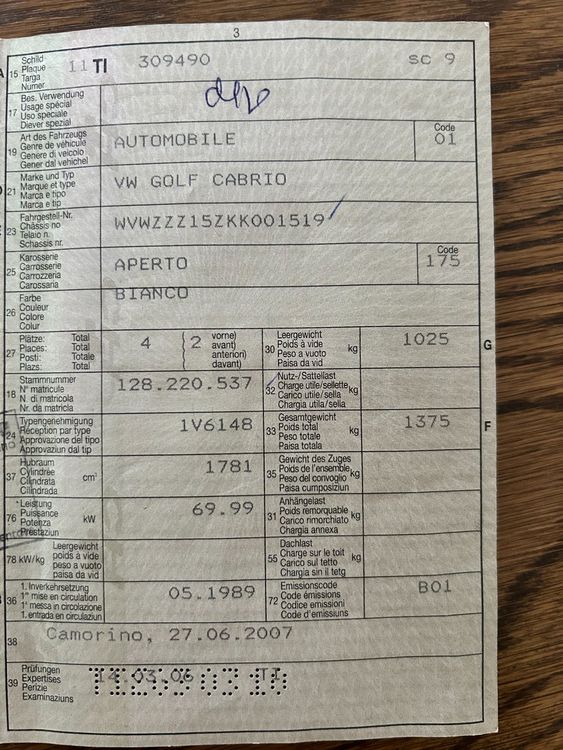 3
15 Schild Plaque Targa Numer 11 TI 309490 SC 9
17 Bes. Verwendung Usage spécial Uso speciale Diever spezial
19 Art des Fahrzeugs Genre de véhicule Genere di veicolo Gener dal vehichel AUTOMOBILE Code 01
21 Marke und Typ Marque et type Marca e tipo Marca e tip VW GOLF CABRIO
23 Fahrgestell-Nr. Châssis no Telaio n. Schassis nr. WVWZZZ15ZKK001519
25 Karosserie Carrosserie Carrozzeria Carossaria APERTO Code 175
26 Farbe Couleur Colore Colur BIANCO
27 Plätze: Total Places: Total Posti: Totale Plazs: Total 4 2 vorne) avant) anteriori) davant) 30 Leergewicht Poids à vide Peso a vuoto Paisa da vid kg 1025 G
18 Stammnummer N° matricule N. di matricola Nr. da matricla 128.220.537 32 Nutz-/Sattellast Charge utile/sellette Carico utile/sella Chargia utila/sella kg
24 Typengenehmigung Réception par type Approvazione del tipo Approvaziun dal tip 1V6148 33 Gesamtgewicht Poids total Peso totale Paisa totala kg 1375 F
37 Hubraum Cylindrée Cilindrata Cilindrada cm³ 1781 35 Gewicht des Zuges Poids de l'ensemble Peso del convoglio Paisa cumposiziun kg
76 Leistung Puissance Potenza Prestaziun kW 69.99 31 Anhängelast Poids remorquable Carico rimorchiato Chargia annexa kg
78 kW/kg Leergewicht poids à vide peso a vuoto paisa da vid 55 Dachlast Charge sur le toit Carico sul tetto Chargia sin il tetg kg
36 1. Inverkehrsetzung 1re mise en circulation 1a messa in circolazione 1. entrada en circulaziun 05.1989 72 Emissionscode Code émissions Codice emissioni Code d'emissiuns B01
38 Camorino, 27.06.2007
39 Prüfungen Expertises Perizie Examinaziuns 14.03.06 TI